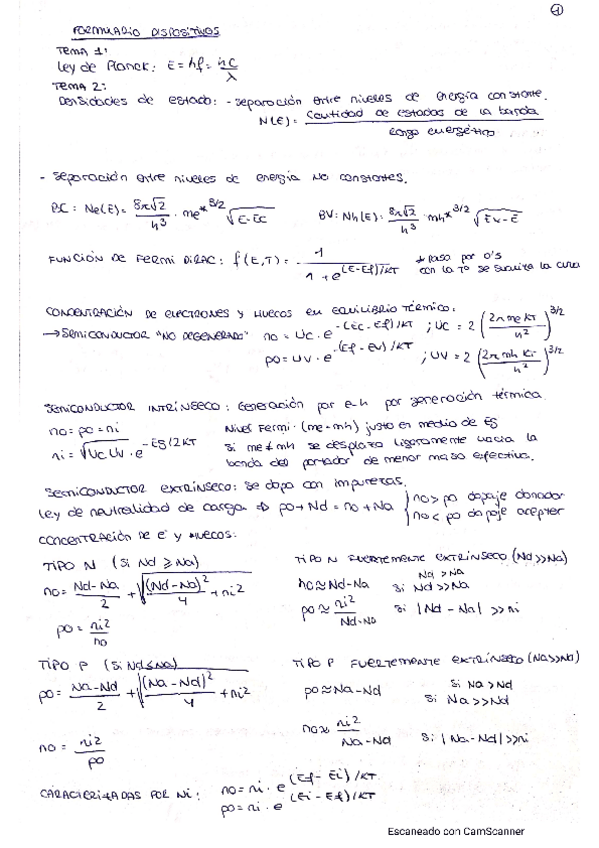 1
FORMULARIO DISPOSITIVOS
TEMA 1:
Ley de Planck: E = hf = hc/λ
TEMA 2:
Densidades de estado: - separación entre niveles de energía constante.
N(E) = Cantidad de estados de la banda / rango energético
- Separación entre niveles de energía no constantes.
BC: Ne(E) = 8π√2/h³ · me*^3/2 √E-EC BV: Nh(E) = 8π√2/h³ · mh*^3/2 √Ev-E
FUNCIÓN DE FERMI DIRAC: f(E,T) = 1 / 1 + e^(E-Ef)/KT * Pasa por 0's
con la Tª se suaviza la curva
CONCENTRACIÓN DE ELECTRONES Y HUECOS EN EQUILIBRIO TÉRMICO:
→ SEMICONDUCTOR "NO DEGENERADO" no = Uc · e^-(Ec-Ef)/KT ; Uc = 2 (2π me KT / h²)^3/2
po = Uv · e^-(Ef-Ev)/KT ; Uv = 2 (2π mh KT / h²)^3/2
SEMICONDUCTOR INTRÍNSECO: Generación par e-h por generación térmica
no = po = ni Nivel Fermi: (me=mh) justo en medio de Eg
ni = √Uc Uv · e^-Eg/2KT Si me ≠ mh se desplaza ligeramente hacia la
banda del portador de menor masa efectiva.
SEMICONDUCTOR EXTRÍNSECO: Se dopa con impurezas.
Ley de neutralidad de carga ⇒ po + Nd = no + Na { no > po dopaje donador
no < po dopaje aceptor
CONCENTRACIÓN DE e⁻ y HUECOS:
TIPO N (Si Nd ≥ Na) TIPO N FUERTEMENTE EXTRÍNSECO (Nd >> Na)
no = Nd-Na/2 + √(Nd-Na)²/4 + ni² no ≈ Nd-Na Si Nd > Na
Nd >> Na
po = ni²/no po ≈ ni²/Nd-Na Si |Nd-Na| >> ni
TIPO P (Si Nd ≤ Na) TIPO P FUERTEMENTE EXTRÍNSECO (Na >> Nd)
po = Na-Nd/2 + √(Na-Nd)²/4 + ni² po ≈ Na-Nd Si Na > Nd
Si Na >> Nd
no = ni²/po no ≈ ni²/Na-Nd Si |Na-Nd| >> ni
CARACTERIZADAS POR Ni: no = ni · e^(Ef-Ei)/KT
po = ni · e^(Ei-Ef)/KT
Escaneado con CamScanner